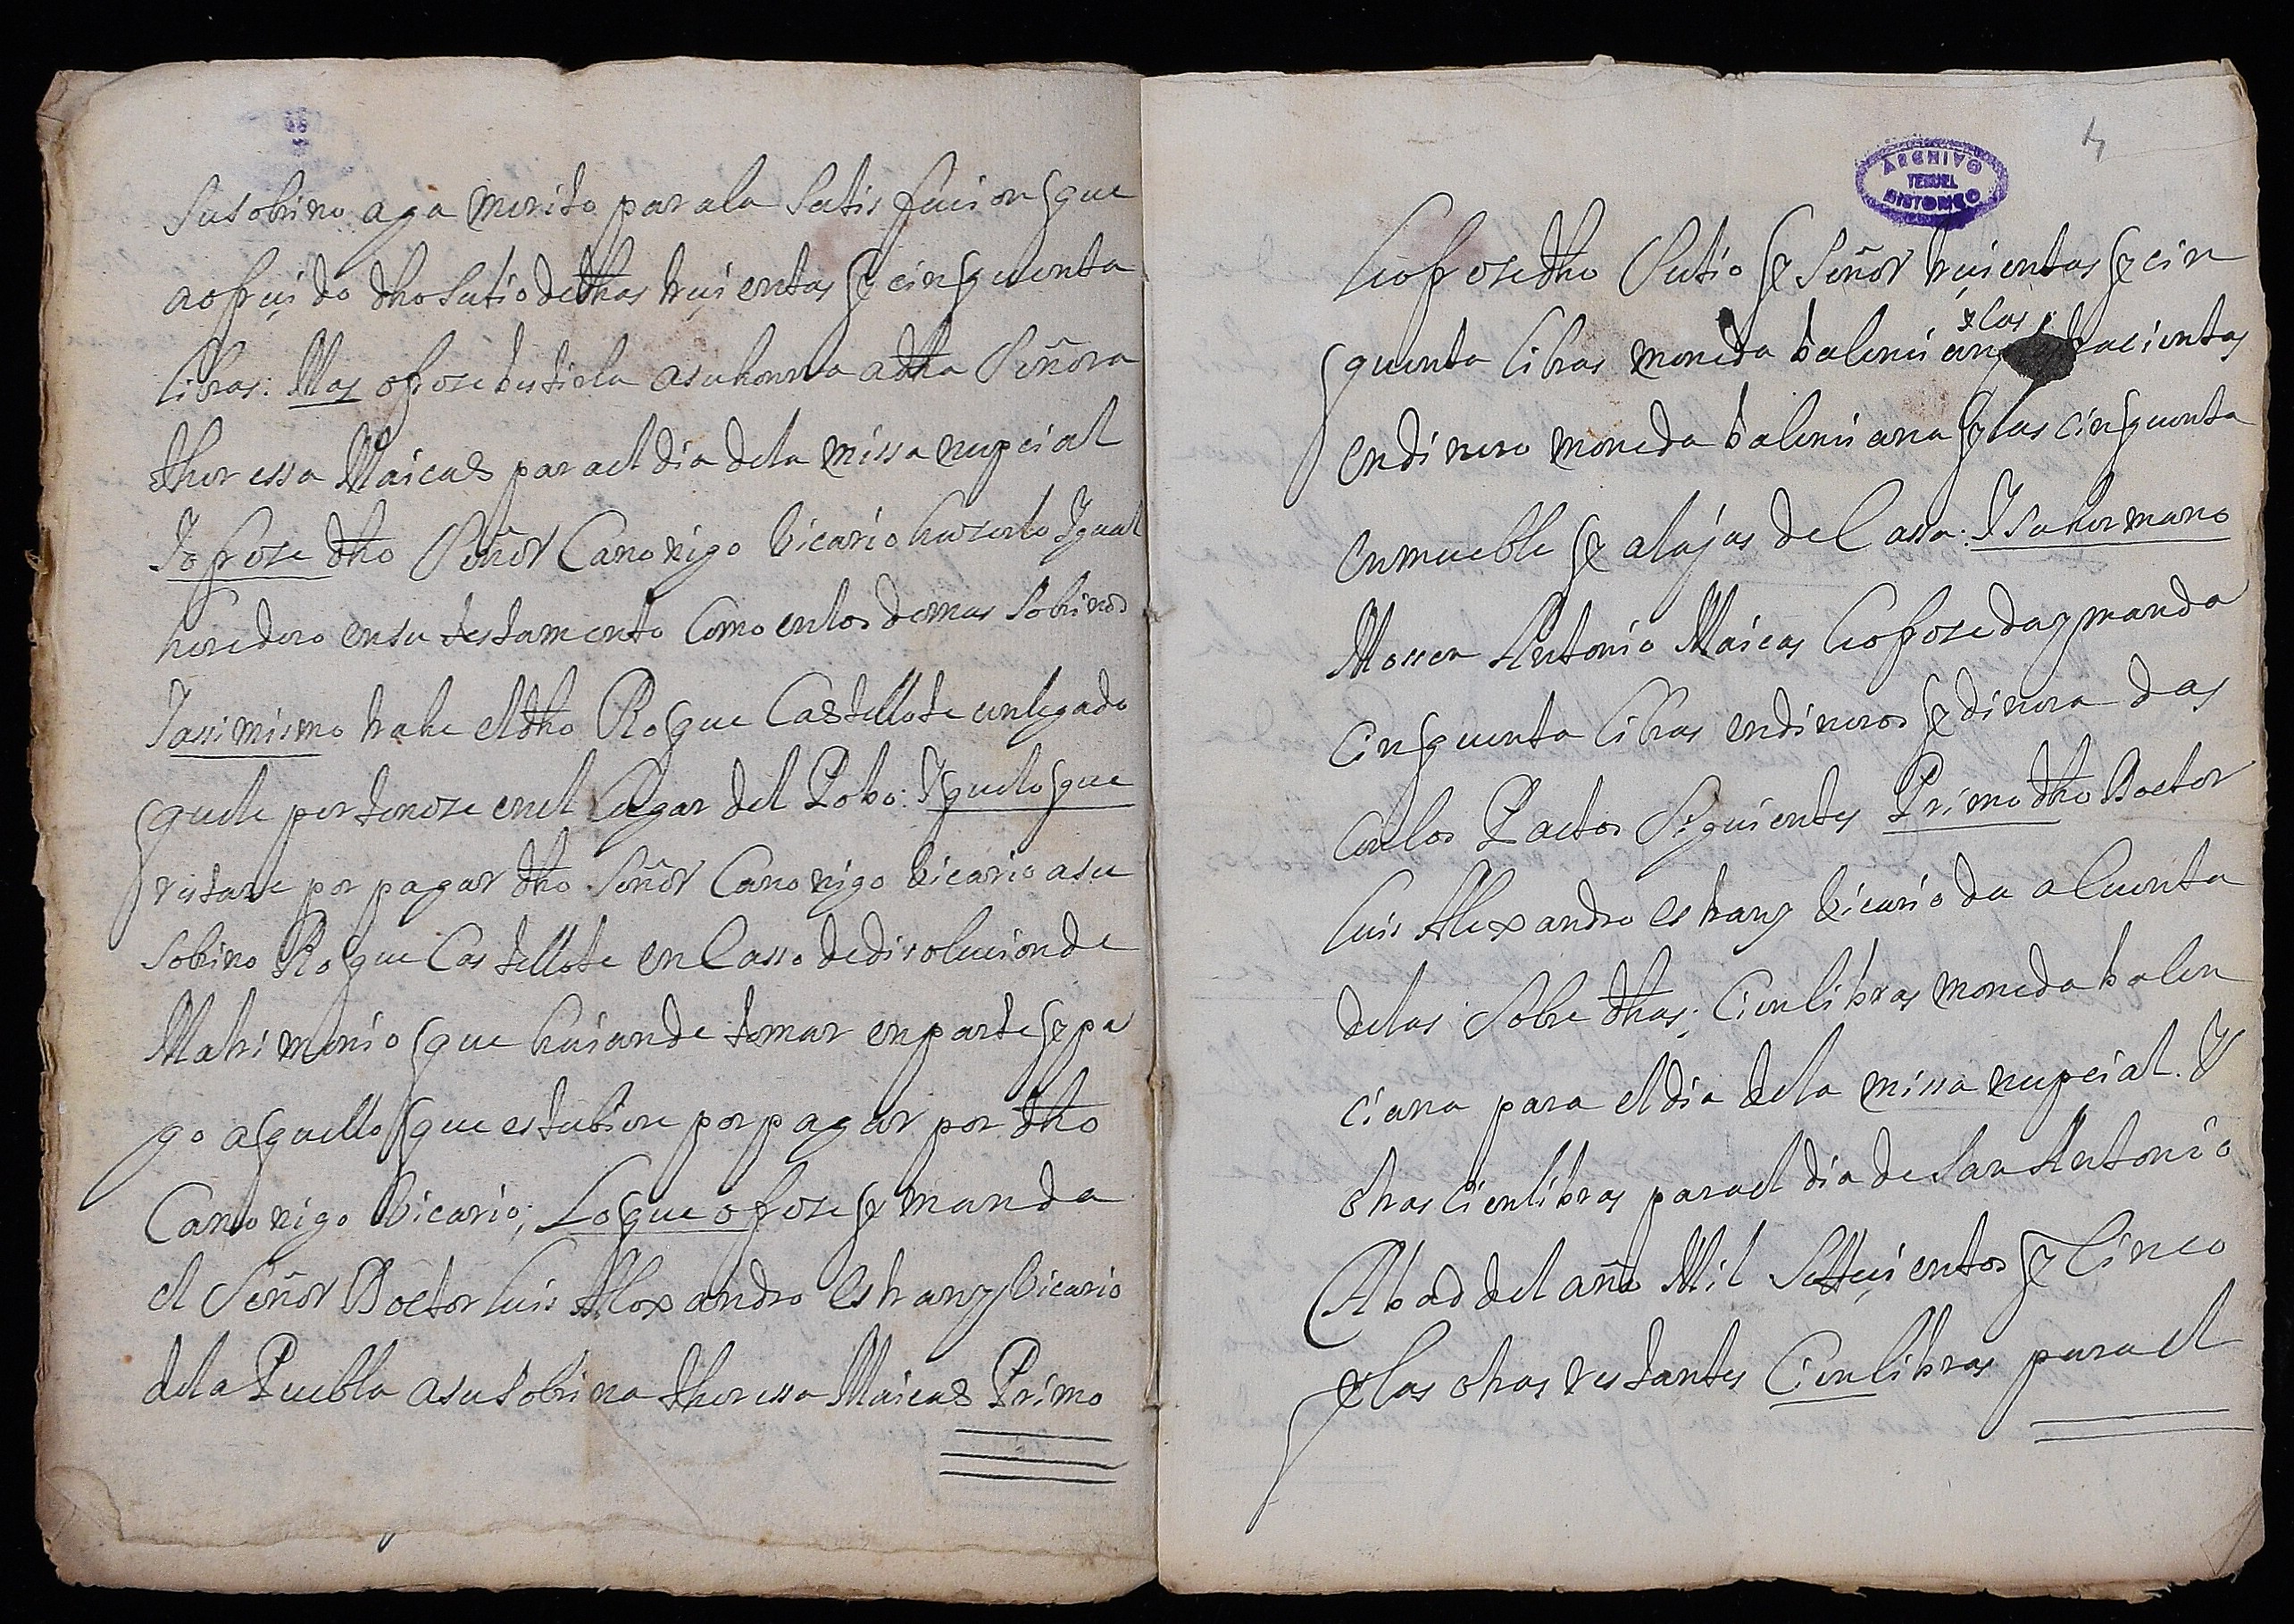 Su sobrino aga merito para la Satisfacion que
a ofrecido dho Su tio de dhas treicientas y cinquenta
libras: Mas ofrece bestirla a su honrra a dha Señora
theressa Maicas para el dia de la missa nupcial
Y ofrece dho Señor Canonigo bicario hacerlo Ygual
heredero en su testamento Como en los demas Sobrinos
Y assi mismo trahe el dho Roque Castellote un legado
que le pertenece en el Lugar del Pobo: Y que lo que
restare por pagar dho Señor Canonigo bicario a su
sobrino Roque Castellote en Casso de disolucion de
Matrimonio que haian de tomar en parte y pa
go aquello que estubiere por pagar por dho
Canonigo bicario; Lo que ofrece y manda
el Señor Doctor luis Alexandro Estranz bicario
de la Puebla a su Sobrina theressa Maicas Primo
ARCHIVO
TERUEL
HISTORICO
4
le ofrece dho Su tio y Señor treicientas y cin
quenta libras moneda balenciana y las trecientas
en dinero moneda balenciana y las cinquenta
en mueble y alajas de Cassa: Y Su hermano
Mossen Antonio Maicas le ofrece da y manda
cinquenta libras en dineros y dineradas
Con los Pactos Siguientes Primo dho Doctor
luis Alexandro estranz bicario da a Cuenta
de las Sobre dhas; Cien libras moneda balen
ciana para el dia de la missa nupcial. Y
otras Cien libras para el dia de San Antonio
Abad del año Mil Settecientos y Cinco
y las otras restantes Cien libras para el